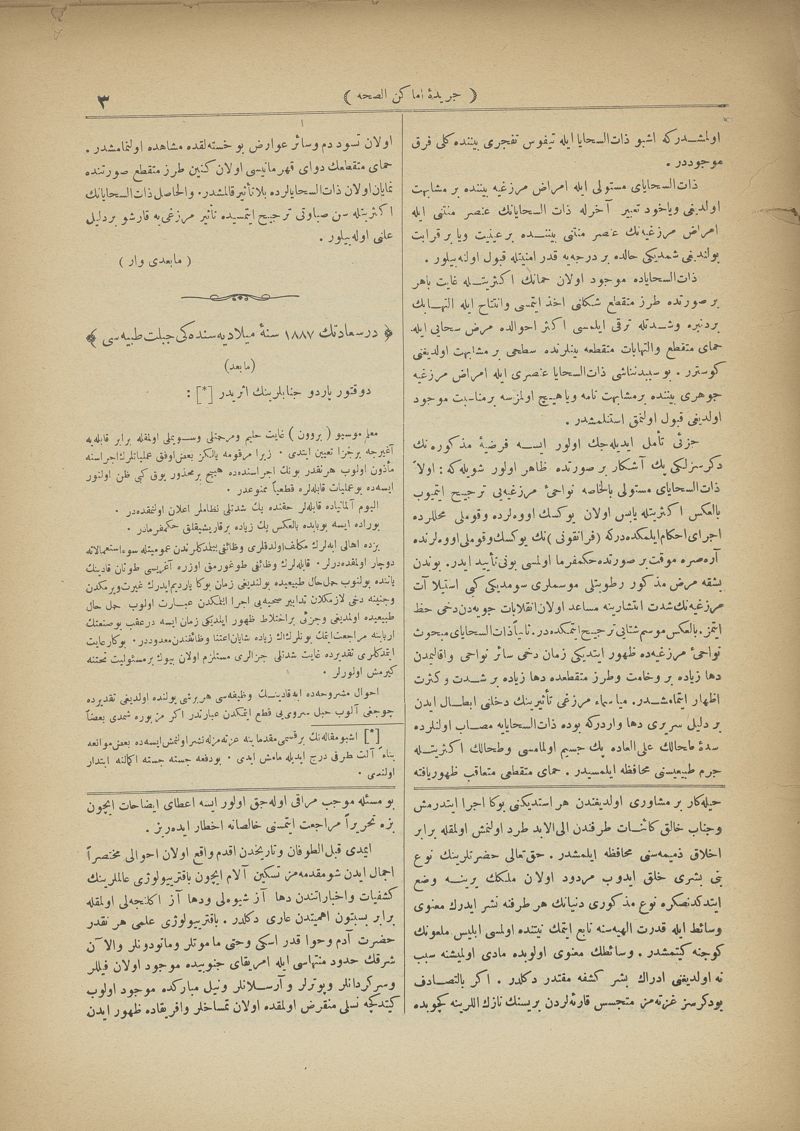 ﴿ جریدۀ اماكن الصحه ﴾
٣
اولمشدركه اشبو ذات السحایا ایله تیفوس تفجری بیننده كلی فرق
موجوددر .
ذات‌السحایای مستولی ایله امراض مرزغیه بیننده بر مشابهت
اولدیغی ویاخود تعبیر آخرله ذات السحایانك عنصر منتنی ایله
امراض مرزغیه‌نك عنصر منتنی بیننده بر عینیت ویا بر قرابت
بولندیغی شمدیكی حالده بر درجه‌یه قدر امنیتله قبول اولنه‌بیلور .
ذات‌السحایاده موجود اولان حمانك اكثریتله غایت باهر
بر صورتده طرز متقطع شكلنی اخذ ایتمسی وانتاح ایله التهابك
بردنبره وشدتله ترقی ایلمسی اكثر احوالده مرض سحایی ایله
حمای متقطع والتهابات متقطعه بینلرنده سطحی بر مشابهت اولدیغنی
كوسترر . بو سببدن‌ناشی ذات‌السحایا عنصری ایله امراض مرزغیه
جوهری بیننده برمشابهت تامه ویاهیچ اولمزسه برمناسبت موجود
اولدیغی قبول اولنمق استنلمشدر .
جزئی تأمل ایدیله‌جك اولور ایسه فرضیۀ مذكوره‌نك
دكرسزلكی پك آشكار بر صورتده ظاهر اولور شویله‌كه : اولا
ذات‌السحایای مستولی بالخاصه نواحیٔ مرزغیه‌یی ترجیح ایتمیوب
بالعكس اكثریتله یابس اولان یوكسك اووه‌لرده وقوملی محللرده
اجرای احكام ایلمكده‌دركه (فرانقونی) نك یوكسك وقوملی اووه‌لرنده
آره‌صره موقت بر صورتده حكمفرما اولمسی بونی تأیید ایدر. بوندن
بشقه مرض مذكور رطوبتلی موسملری سومدیكی كبی استیلاآت
مرزغیه‌نك شدت انتشارینه مساعد اولان انقلابات جویه‌دن‌دخی حظ
ایتمز. بالعكس موسم شتایی ترجیح ایتمكده‌در. ثانیاً ذات‌السحایای مبحوث
نواحیٔ مرزغیه‌ده ظهور ایتدیكی زمان دخی سائر نواحی واقالیمدن
دها زیاده بر وخامت وطرز متقطعده دها زیاده بر شدت وكثرت
اظهار ایتمامشدر. میاسماء مرزغی تأثیرینك دخلنی ابطال ایدن
بر دلیل سریری دها واردركه بوده ذات‌السحایایه مصاب اولنلرده
سدۀ طحالك علی‌العاده پك جسیم اولمامسی وطحالك اكثریتله
جرم طبیعیسنی محافظه ایلمسیدر . حمای متقطعی متعاقب ظهوریافته
اولان تسود دم وسائر عوارض بو خسته‌لقده مشاهده اولنمامشدر .
حمای متقطعه‌ك دوای قهرمانیسی اولان كنین طرز متقطع صورتنده
نمایان اولان ذات‌السحایالرده بلاتأثیر قالمشدر. والحاصل ذات‌السحایانك
اكثریتله سن صباوتی ترجیح ایتمسیده تأثیر مرزغی‌یه قارشو بردلیل
علنی اوله‌بیلور .
( مابعدی وار )
﴿ درسعادتك ١٨٨٧ سنۀ میلادیه‌سنده‌كی جبلت طبیه‌سی ﴾
(مابعد)
دوقتور پاردو جنابلرینك اثریدر [*] :
معلم موسیو (بروون) غایت حلیم ومرحمتلی وسویملی اولمقله برابر قابله‌یه
آغیرجه برجزا تعیین ایتدی . زیرا مرقومه یالكز بعض اوفق عملیاتلرك اجراسنه
مأذون اولوب هرنقدر بونك اجراسنده‌ده هیچ برمحذور یوق كبی ظن اولنور
ایسه‌ده بوعملیات قابله‌لره قطعیاً ممنوعدر .
الیوم آلمانیاده قابله‌لر حقنده پك شدتلی نظاملر اعلان اولنمقده‌در .
بوراده ایسه بوبابده بالعكس پك زیاده برقاریشیقلق حكمفرمادر .
بزده اهالی ابه‌لرك مكلف اولدقلری وظائفی بیلمدكلرندن عمومیتله سوء استعمالاته
دوچار اولمقده‌درلر . قابله‌لرك وظائفی طوغورمق اوزره آغریسی طوتان قادینك
یاننده بولنوب حمل‌حال طبیعیده بولندیغی زمان بوكا یاردیم‌ایدرك غیرت‌ویرمكدن
وجنینه دخی لازمكلان تدابیر صحیه‌یی اجرا ایتمكدن عبارت اولوب حمل حال
طبیعیده اولمدیغی وجزئی براختلاط ظهور ایلدیكی زمان ایسه درعقب بوصنعتك
اربابنه مراجعت‌ایتمك بونلرك‌ك زیاده شایان‌اعتنا وظائفندن‌معدوددر. بوكارعایت
ایتمدكلری تقدیرده غایت شدتلی جزالری مستلزم اولان بیوك برمسئولیت تحتنه
كیرمش اولورلر .
احوال مشروحه‌ده ابه‌قادینك وظیفه‌سی هرشیئی یولنده اولدیغی تقدیرده
چوجغی آلوب حبل سروی‌یی قطع ایتمكدن عبارتدر اكر مزبوره شمدی بعضاً
[*] اشبومقاله‌نك برقسمی مقدماینه غزته‌مزله نشراولنمش‌ایسه‌ده بعض موانعه
بناءً آلت طرفی درج ایدیله مامش ایدی . بودفعه جسته جسته اكمالنه ابتدار
اولندی .
حیله‌كار بر مشاوری اولدیغندن هر استدیكنی بوكا اجرا ایتدرمش
وجناب خالق كائنات طرفندن الی‌الابد طرد اولنمش اولمقله برابر
اخلاق ذمیمه‌سنی محافظه ایلمشدر . حق‌تعالی حضرتلرینك نوع
بنی بشری خلق ایدوب مردود اولان ملكك یرینه وضع
ایتدكدنصكره نوع مذكوری دنیانك هر طرفنه نشر ایدرك معنوی
وسائط ایله قدرت الهیه‌سنه تابع ایتمك نیتنده اولمسی ابلیس ملعونك
كوجنه كیتمشدر . وسائطك معنوی اولوبده مادی اولمیشنه سبب
نه اولدیغنی ادراك بشر كشفه مقتدر دكلدر . اكر بالتصادف
یودكرسز غزته‌مز متجسس قارئه‌لردن بریسنك نازك اللرینه كچوبده
بو مسئله موجب مراقی اوله‌جق اولور ایسه اعطای ایضاحات ایچون
بزه تحریراً مراجعت ایتمسنی خالصانه اخطار ایده‌ریز .
ایمدی قبل‌الطوفان وتاریخدن اقدم واقع اولان احوالی مختصراً
اجمال ایدن شومقدمه‌مز تسكین آلام ایچون باقتریبولوژی عالملرینك
كشفیات واخباراتندن دها آز شیوه‌لی ودها آز اكلنجه‌لی اولمقله
برابر بستون اهمیتدن عاری دكلدر . باقتریبولوژی علمی هر نقدر
حضرت آدم وحوا قدر اسكی وحتی ماموتلر ومانودونلر والاآن
شرقك حدود منتهاسی ایله امریقای جنوبیده موجود اولان فیللر
وسركردانلر وپوترلر وآرسلانلر ونیل مباركده موجود اولوب
كیتدكچه نسلی منقرض اولمقده اولان تمساحلر وافریقاده ظهور ایدن